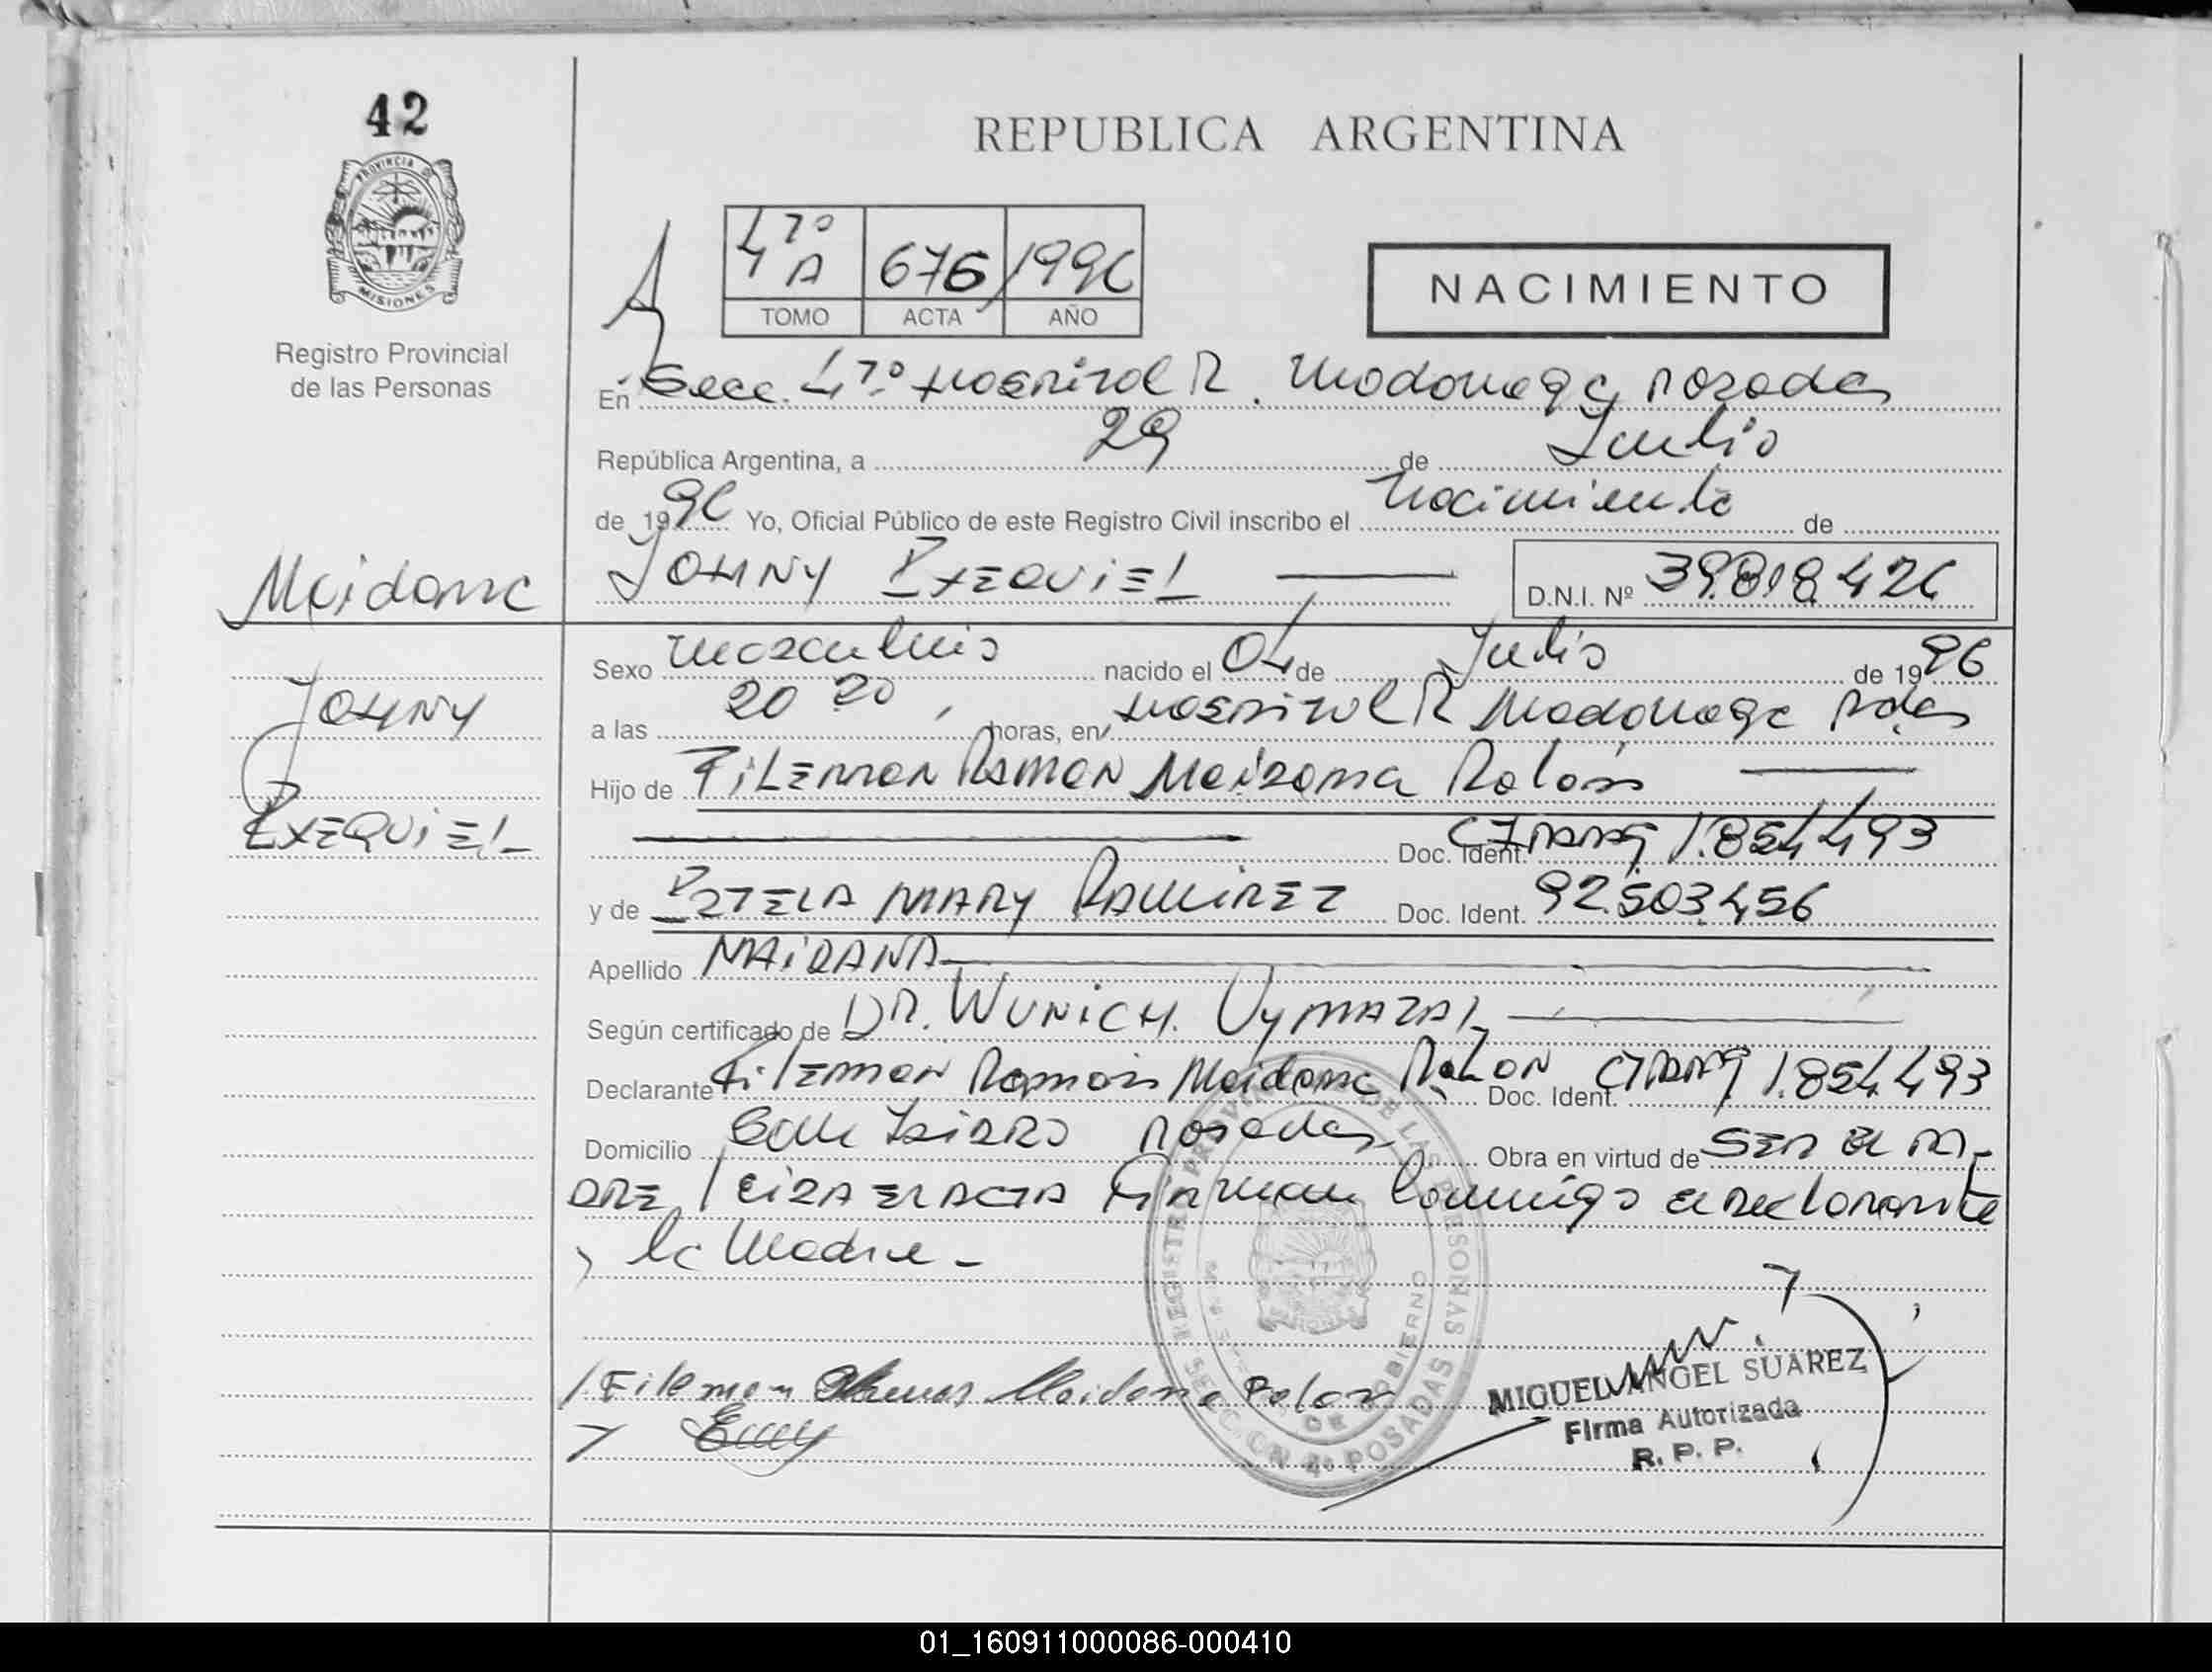 42
PROVINCIA D
MISIONES
Registro Provincial
de las Personas
REPUBLICA ARGENTINA
4to A 676 /1996
TOMO ACTA AÑO
NACIMIENTO
En Secc. 4to Hospital R. Madariaga Posadas
República Argentina, a 29 de Julio
de 1996 Yo, Oficial Público de este Registro Civil inscribo el Nacimiento de
Maidana
JOHNY EXEQUIEL
D.N.I. Nº 39.818.426
Sexo masculino nacido el 04 de Julio de 1996
JOHNY
a las 20 20 horas, en Hospital R Madariaga Pdas
EXEQUIEL
Hijo de FILEMON RAMON Maidana Rolón
Doc. Ident. 1.854.493
y de ESTELA MARY RAMIREZ Doc. Ident. 92.503.456
Apellido MAIDANA
Según certificado de DR. WUNICH. VYMAZAL
Declarante Filemon Ramon Maidana Rolon Doc. Ident. 1.854.493
Domicilio Calle Posadas Obra en virtud de SER EL PA-
DRE LEIDA EL ACTA Firman Conmigo el declarante
y la Madre -
REGISTRO PROVINCIAL DE LAS PERSONAS
DE GOBIERNO
SECCION 4º POSADAS
Filemon Maidana Rolon
MIGUEL ANGEL SUAREZ
Firma Autorizada
R. P. P.
01_160911000086-000410